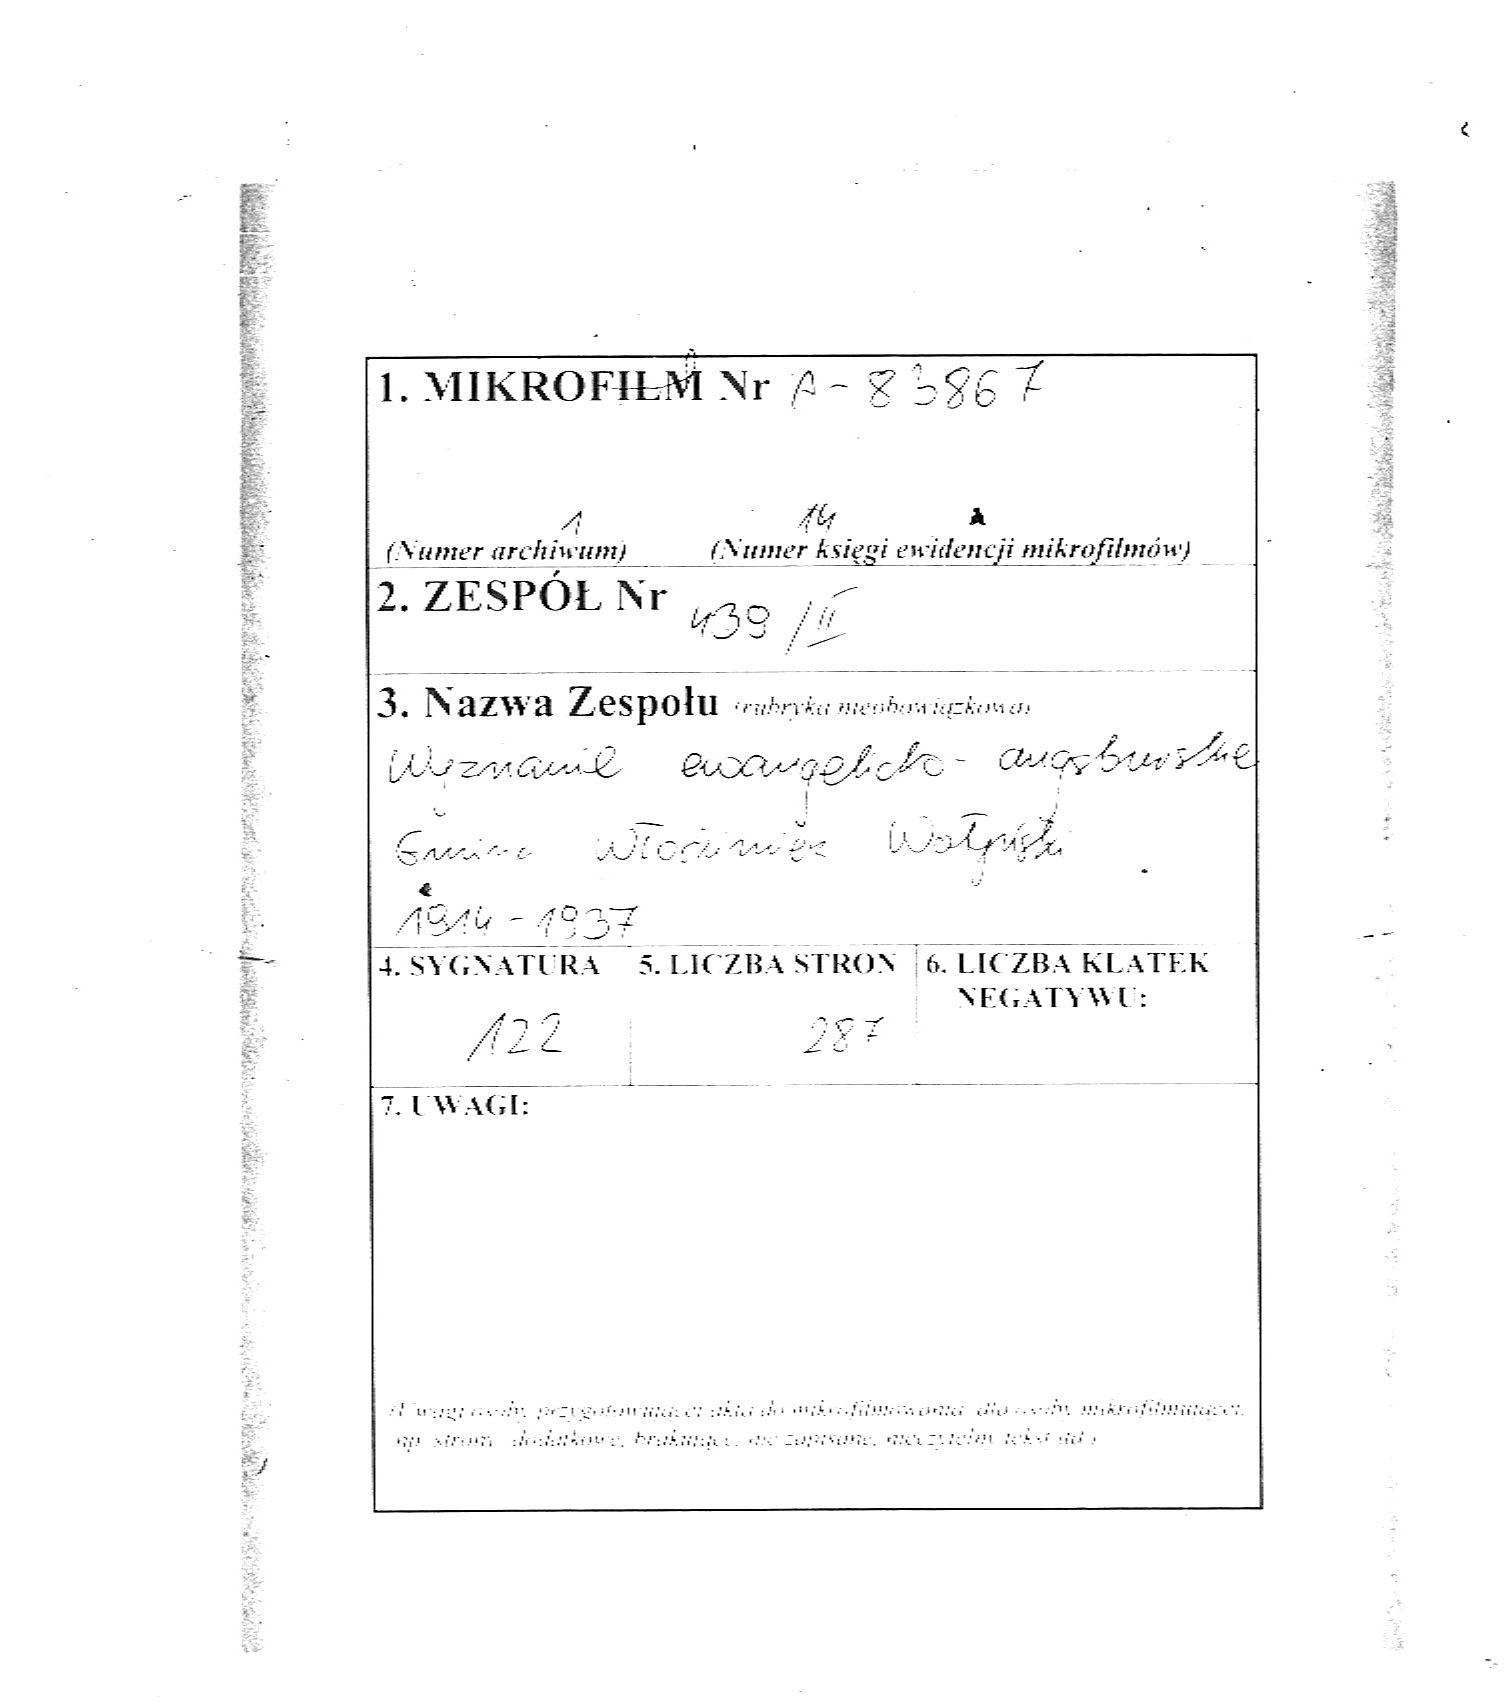 1. MIKROFILM Nr A-83867
1 14 A
(Numer archiwum) (Numer księgi ewidencji mikrofilmów)
2. ZESPÓŁ Nr 439/II
3. Nazwa Zespołu (rubryka nieobowiązkowa)
Wyznanie ewangelicko-augsburskie
Gmina Włodzimierz Wołyński
1914-1937
4. SYGNATURA 5. LICZBA STRON 6. LICZBA KLATEK
NEGATYWU:
122 287
7. UWAGI:
(Uwagi osoby, przygotowującej akta do mikrofilmowania, dla osoby, mikrofilmującej,
np. strony dodatkowe, brakujące, nie zapisane, nieczytelny tekst itd.)